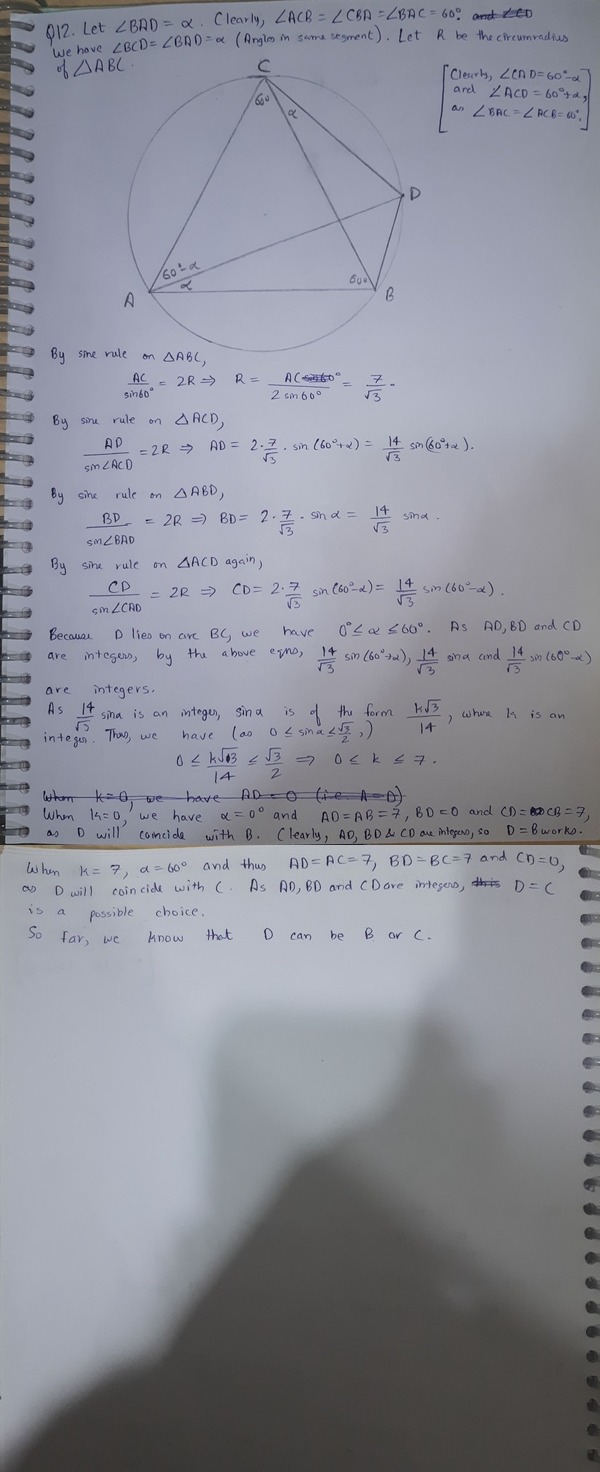 Q12. Let ∠BAD = α. Clearly, ∠ACB = ∠CBA = ∠BAC = 60°. and ∠CD
We have ∠BCD = ∠BAD = α (Angles in same segment). Let R be the circumradius
of △ABC.
[Clearly, ∠CAD = 60°-α
and ∠ACD = 60°+α,
as ∠BAC = ∠ACB = 60°.]
C
60°
α
D
60°-α
α
60°
A
B
By sine rule on △ABC,
AC/sin60° = 2R ⇒ R = AC sin60°/2 sin60° = 7/√3.
By sine rule on △ACD,
AD/sin∠ACD = 2R ⇒ AD = 2·7/√3 · sin(60°+α) = 14/√3 sin(60°+α).
By sine rule on △ABD,
BD/sin∠BAD = 2R ⇒ BD = 2·7/√3 · sinα = 14/√3 sinα.
By sine rule on △ACD again,
CD/sin∠CAD = 2R ⇒ CD = 2·7/√3 sin(60°-α) = 14/√3 sin(60°-α).
Because D lies on arc BC, we have 0° ≤ α ≤ 60°. As AD, BD and CD
are integers, by the above eqns, 14/√3 sin(60°+α), 14/√3 sinα and 14/√3 sin(60°-α)
are integers.
As 14/√3 sinα is an integer, sinα is of the form k√3/14, where k is an
integer. Thus, we have (as 0 ≤ sinα ≤ √3/2,)
0 ≤ k√3/14 ≤ √3/2 ⇒ 0 ≤ k ≤ 7.
When k=0, we have AD=0 (i.e. A=D)
When k=0, we have α=0° and AD=AB=7, BD=0 and CD=CB=7,
as D will coincide with B. Clearly, AD, BD & CD are integers, so D=B works.
When k=7, α=60° and thus AD=AC=7, BD=BC=7 and CD=0,
as D will coincide with C. As AD, BD and CD are integers, this D=C
is a possible choice.
So far, we know that D can be B or C.